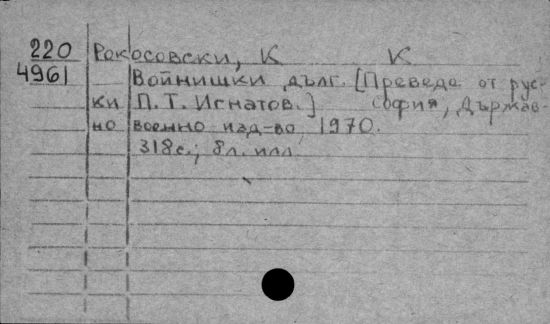 220 Рокосовски, К К
4961 Войнишки дълг. [Преведе от рус-
ки П. Т. Игнатов.] София, Държав-
но военно изд-во, 1970.
318 с.; 8 л. илл.